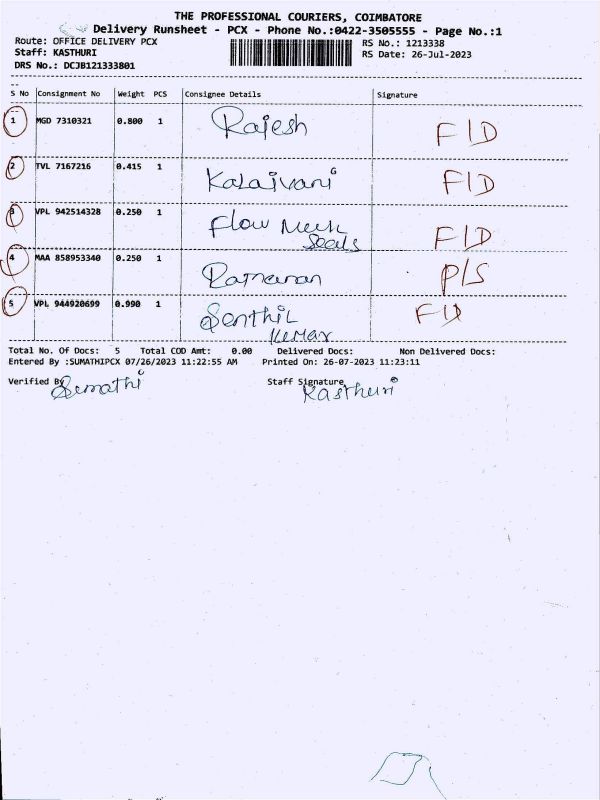 THE PROFESSIONAL COURIERS, COIMBATORE
Delivery Runsheet - PCX - Phone No.:0422-3505555 - Page No.:1
Route: OFFICE DELIVERY PCX RS No.: 1213338
Staff: KASTHURI RS Date: 26-Jul-2023
DRS No.: DCJB121333801
S No Consignment No Weight PCS Consignee Details Signature
1 MGD 7310321 0.800 1 Rajesh FID
2 TVL 7167216 0.415 1 Kalaivani FID
3 VPL 942514328 0.250 1 Flow Mech
Seals FID
4 MAA 858953340 0.250 1 P/S
5 VPL 944920699 0.990 1 Senthil
Kumar
Total No. Of Docs: 5 Total COD Amt: 0.00 Delivered Docs: Non Delivered Docs:
Entered By :SUMATHIPCX 07/26/2023 11:22:55 AM Printed On: 26-07-2023 11:23:11
Verified By Sumathi Staff Signature Kasthuri